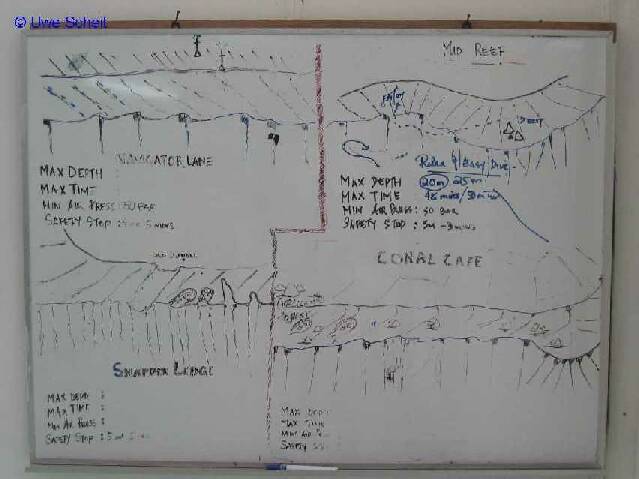 © Uwe Scheit
MID REEF
NAVIGATOR LANE
MAX DEPTH :
MAX TIME :
MIN AIR PRESS : 50 BAR
SAFETY STOP : 5m 3 mins
Relax / Easy Dive
MAX DEPTH 20m 25m
MAX TIME 45 mins/50 min
MIN AIR PRESS : 50 BAR
SAFETY STOP : 5m - 3 mins
CORAL CAFE
LOUNGE
MAX DEPTH :
MAX TIME :
MIN AIR PRESS :
SAFETY STOP : 5m
MAX DEPTH
MAX TIME
MIN AIR
SAFETY